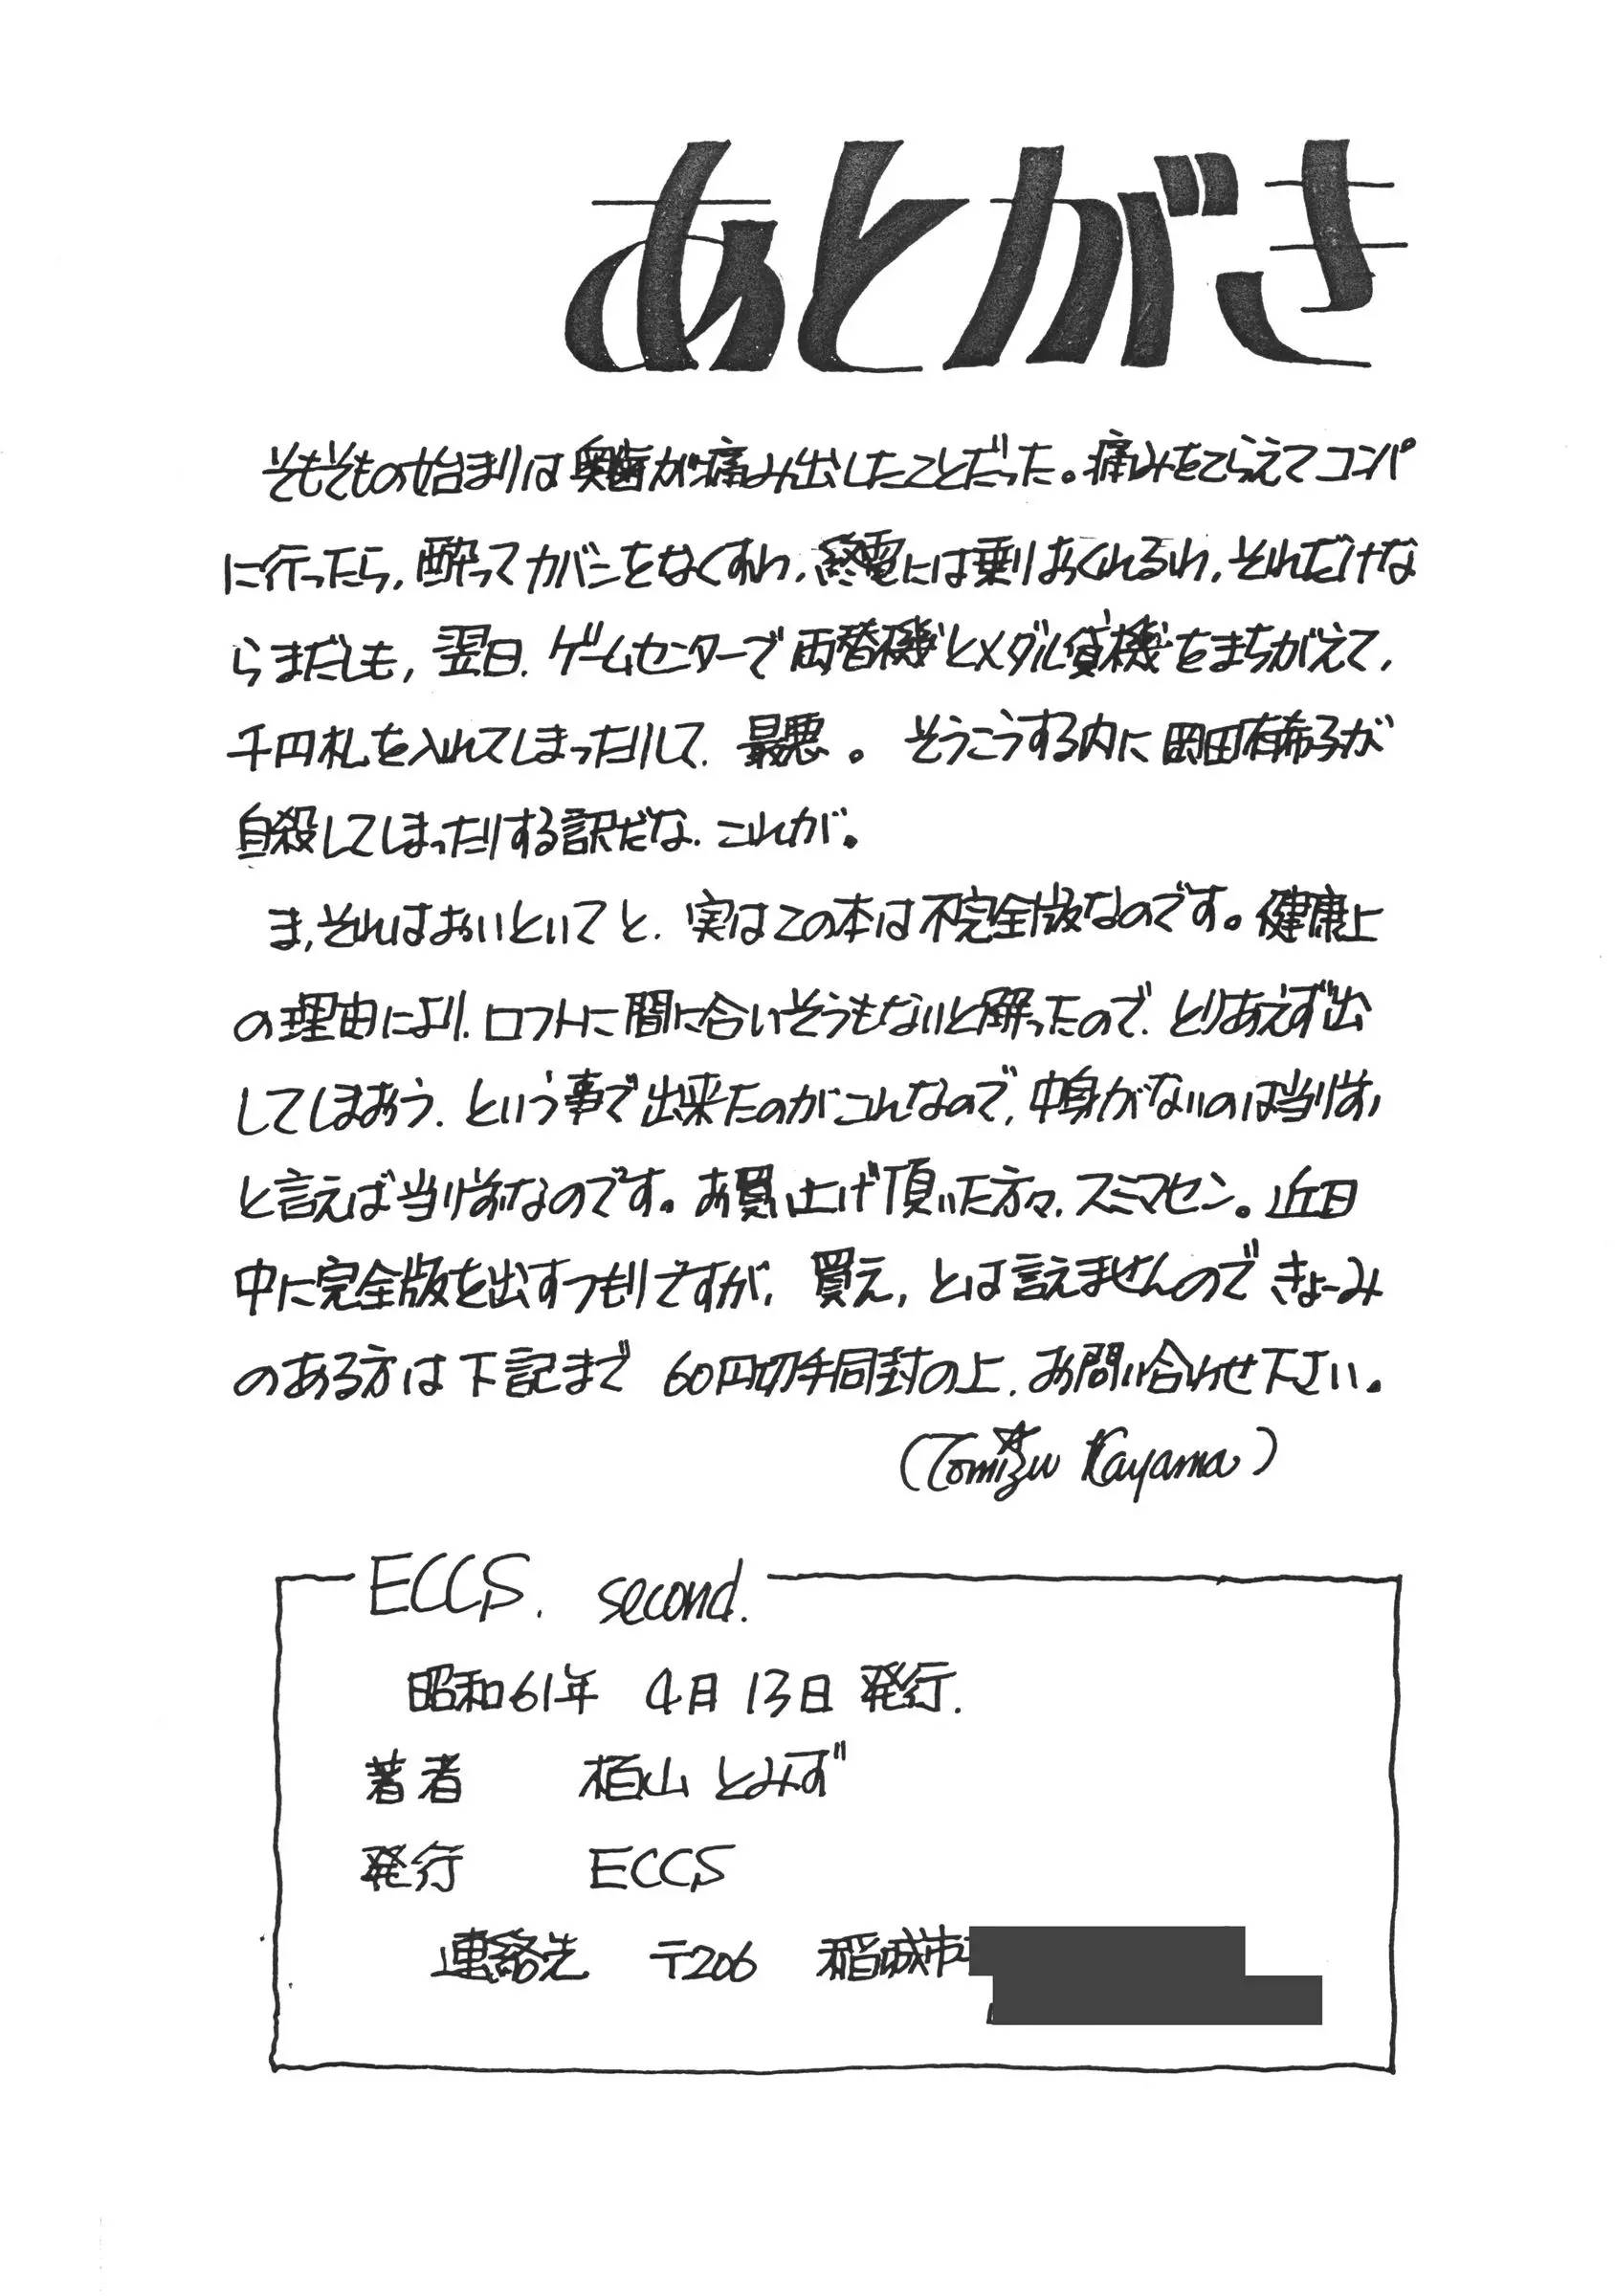 あとがき
そもそもの始まりは奥歯が痛み出したことだった。痛みをこらえてコンパ
に行ったら、酔ってカバンをなくすわ、終電には乗りおくれるわ、それだけな
らまだしも、翌日、ゲームセンターで両替機とメダル貸機をまちがえて、
千円札を入れてしまったりして、最悪。そうこうする内に岡田有希子が
自殺してしまったりする訳だな、これが。
ま、それはおいといてと、実はこの本は不完全版なのです。健康上
の理由により、ロフトに間に合いそうもないと解ったので、とりあえず出
してしまおう、という事で出来たのがこんなので、中身がないのは当り前
と言えば当り前なのです。お買い上げ頂いた方々、スミマセン。近日
中に完全版を出すつもりですが、買え、とは言えませんので きょーみ
のある方は下記まで 60円切手同封の上、お問い合わせ下さい。
(Tomizu Kayama)
ECCS. second.
昭和61年 4月13日 発行.
著者 栢山 とみず
発行 ECCS
連絡先 〒206 稲城市